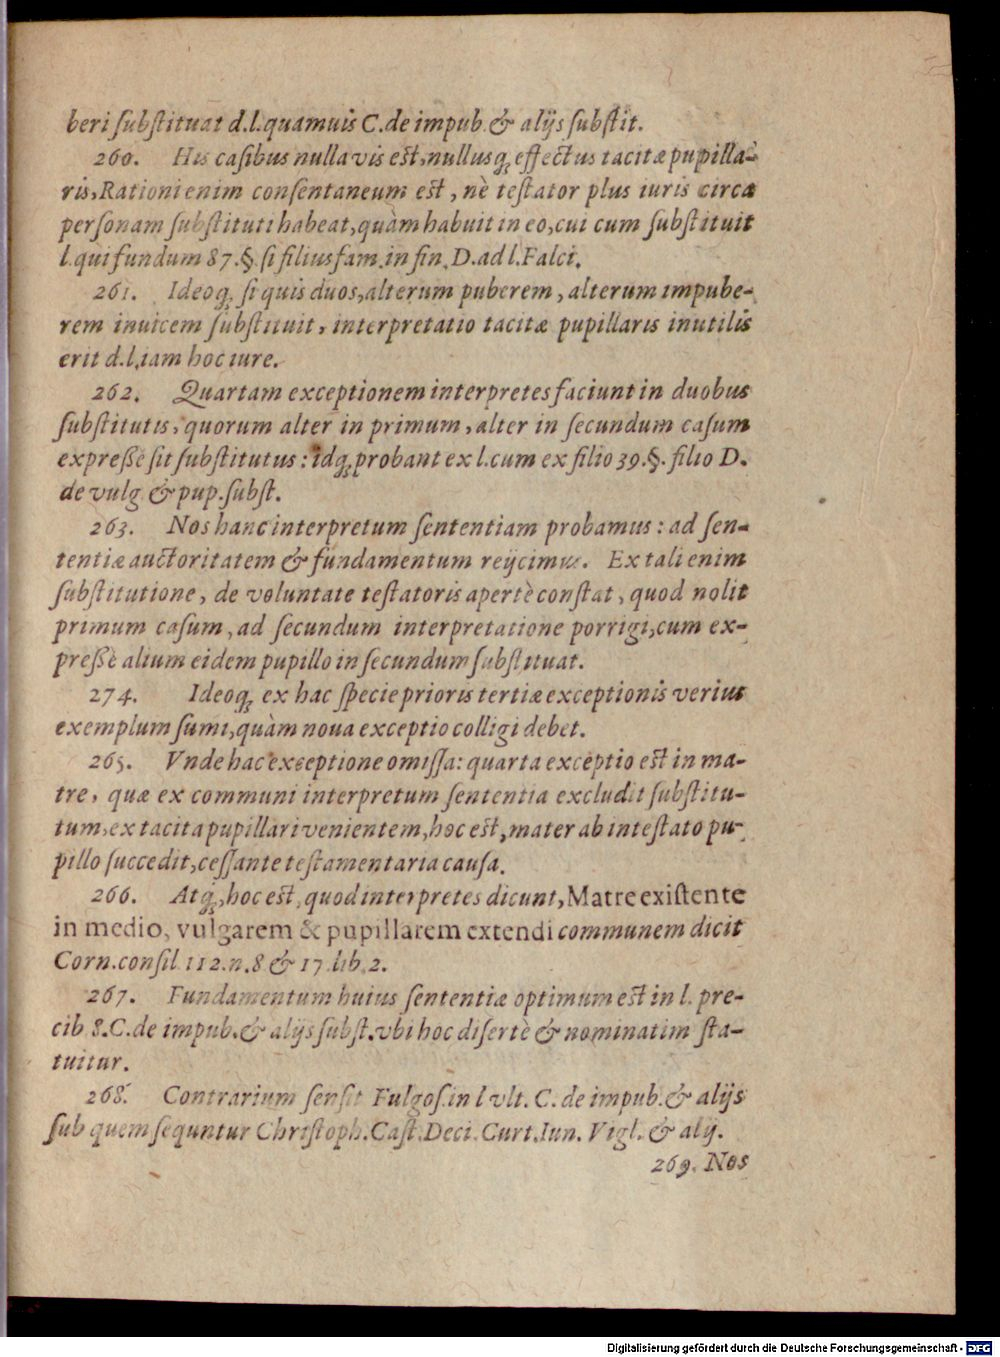 beri ſubſtituat d.l. quamuis C. de impub. & alijs ſubſtit.
260. His caſibus nulla vis eſt, nullusq; effectus tacitæ pupilla-
ris, Rationi enim conſentaneum eſt, nè teſtator plus iuris circa
perſonam ſubſtituti habeat, quàm habuit in eo, cui cum ſubſtituit
l. qui fundum 87. §. ſi filius fam. in fin. D. ad l. Falci.
261. Ideoq; ſi quis duos, alterum puberem, alterum impube-
rem inuicem ſubſtituit, interpretatio tacitæ pupillaris inutilis
erit d.l. iam hoc iure.
262. Quartam exceptionem interpretes faciunt in duobus
ſubſtitutis, quorum alter in primum, alter in ſecundum caſum
expreßè ſit ſubſtitutus: idq; probant ex l. cum ex filio 39. §. filio D.
de vulg & pup. ſubſt.
263. Nos hanc interpretum ſententiam probamus: ad ſen-
tentiæ auctoritatem & fundamentum reijcimus. Ex tali enim
ſubſtitutione, de voluntate teſtatoris apertè conſtat, quod nolit
primum caſum, ad ſecundum interpretatione porrigi, cum ex-
preßè alium eidem pupillo in ſecundum ſubſtituat.
274. Ideoq; ex hac ſpecie prioris tertiæ exceptionis verius
exemplum ſumi, quàm noua exceptio colligi debet.
265. Vnde hac exceptione omiſſa: quarta exceptio eſt in ma-
tre, quæ ex communi interpretum ſententia excludit ſubſtitu-
tum, ex tacita pupillari venientem, hoc eſt, mater ab inteſtato pu-
pillo ſuccedit, ceſſante teſtamentaria cauſa.
266. Atq;, hoc eſt, quod interpretes dicunt, Matre exiſtente
in medio, vulgarem & pupillarem extendi communem dicit
Corn. conſil. 112. n. 8 & 17. lib. 2.
267. Fundamentum huius ſententiæ optimum eſt in l. pre-
cib 8. C. de impub. & alijs ſubſt. vbi hoc diſertè & nominatim ſta-
tuitur.
268. Contrarium ſenſit Fulgoſ. in l vlt. C. de impub. & alijs
ſub quem ſequntur Chriſtoph. Caſt. Deci. Curt. Iun. Vigl. & alij.
269. Nos
Digitalisierung gefördert durch die Deutsche Forschungsgemeinschaft - DFG